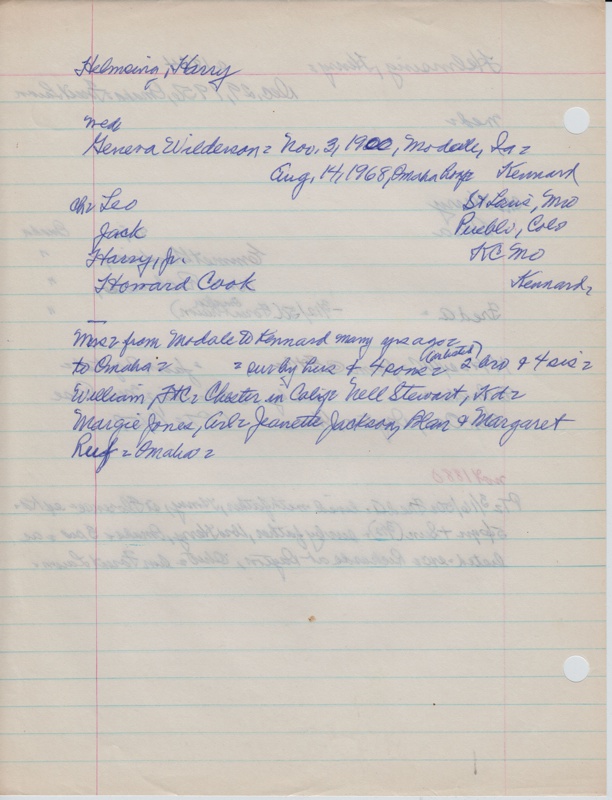 Helmsing, Harry
wed
Geneva Wilderson = Nov. 3, 1900, Modale, Ia =
Aug. 14, 1968, Omaha Hosp = Kennard
ch = Leo St Louis, Mo
Jack Pueblo, Colo
Harry, Jr. KC Mo
Howard Cook Kennard =
Mos = from Modale to Kennard many yrs ago =
to Omaha = = sur by hus & 4 sons = (as listed) 2 bro & 4 sis =
William, = Chester in Calif = Nell Stewart, =
Margie Jones, = Jeanette Jackson, Blair & Margaret
= Omaha =